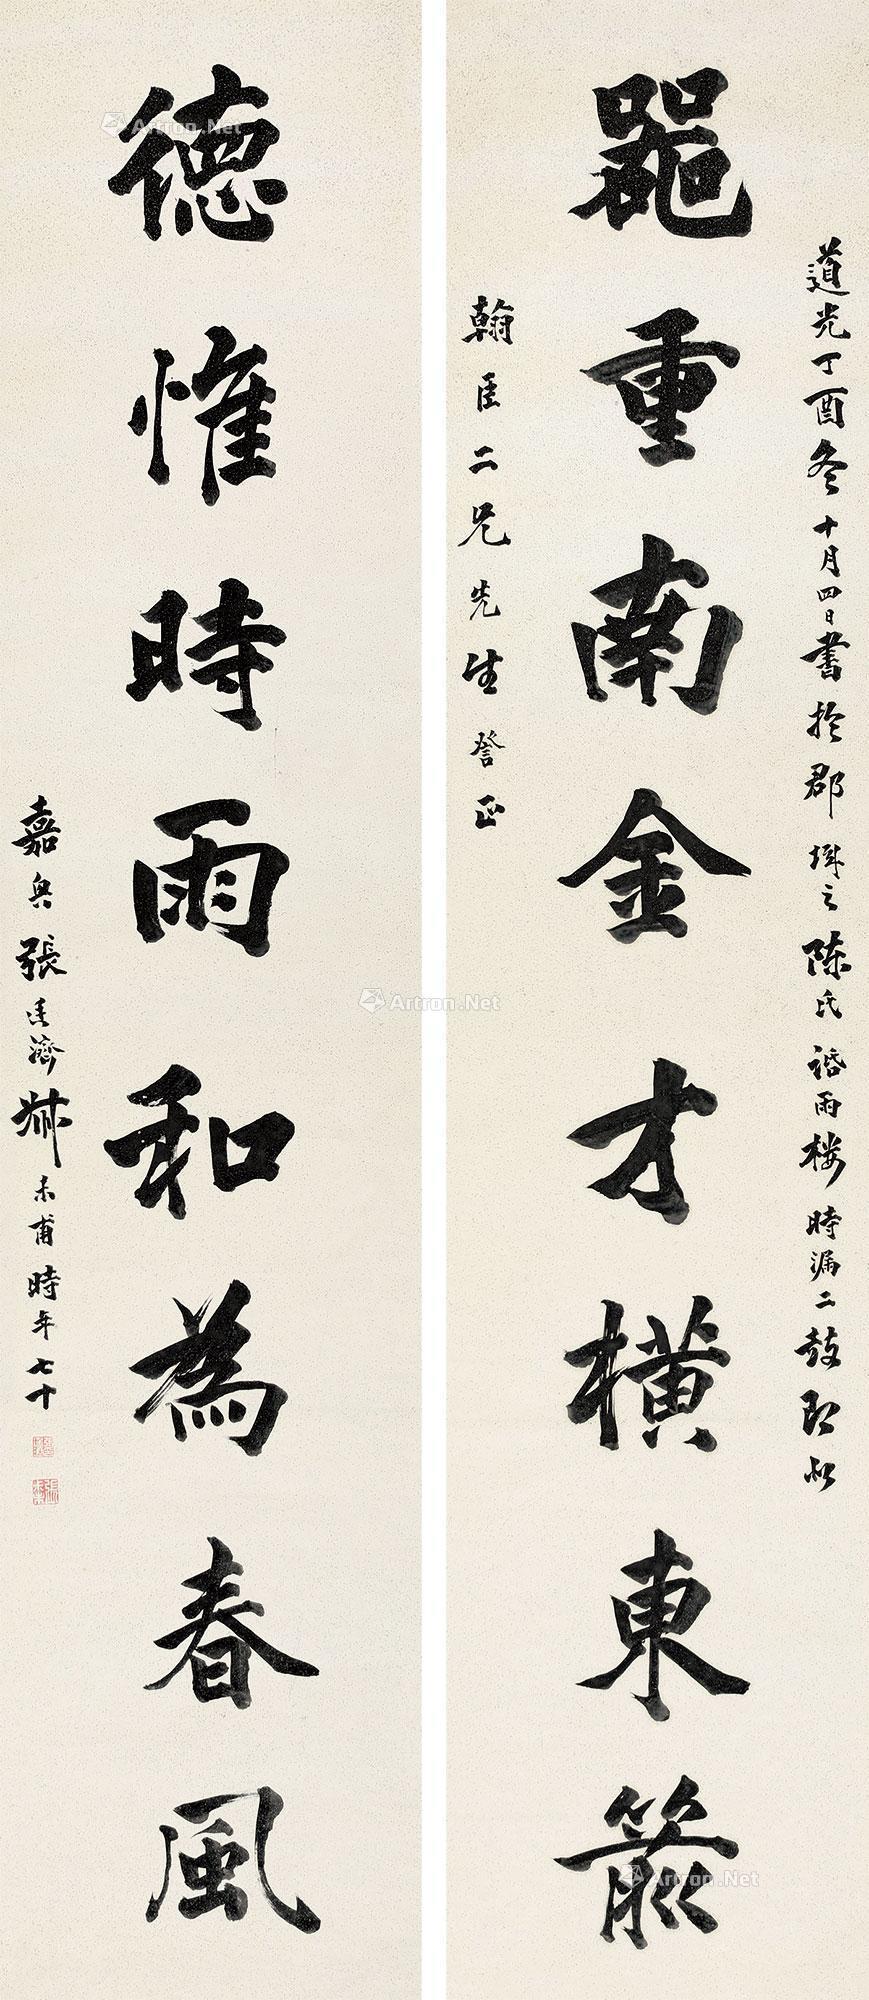 道光丁酉冬十月四日書於郡城之陳氏話雨楼時漏二鼓
器重南金才橫東箭
翰臣二兄先生 正
德惟時雨和為春風
嘉興張廷濟尗未甫時年七十
Artron.Net
Artron.Net
Artron.Net